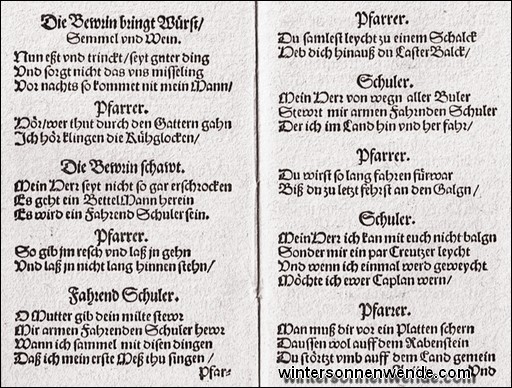 Die Bewrin bringt Würst/
Semmel vnd Wein.
Nun eßt vnd trinckt/seyt gnter ding
Vnd sorgt nicht das vns misseling
Vor nachts so kommet nit mein Mann/
Pfarrer.
Hör/wer thut durch den Gattern gahn
Ich hör klingen die Kühglocken/
Die Bewrin schawt.
Mein Herr seyt nicht so gar erschrocken
Es geht ein BettelMann herein
Es wird ein Fahrend Schuler sein.
Pfarrer.
So gib jm resch vnd laß jn gehn
Vnd laß jn nicht lang hinnen stehn/
Fahrend Schuler.
O Mutter gib dein milte stewr
Mir armen Fahrenden Schuler hewr
Wann ich sammel mit disen dingen
Daß ich mein erste Meß thu singen/
Pfar-
Pfarrer.
Du samlest leycht zu einem Schalck
Heb dich hinauß du Laster Balck/
Schuler.
Mein Herr von wegn aller Buler
Stewrt mir armen Fahrnden Schuler
Der ich im Land hin vnd her fahr/
Pfarrer.
Du wirst so lang fahren fürwar
Biß du zu letzt fehrst an den Galgn/
Schuler.
Mein Herr ich kan mit euch nicht balgn
Sonder mir ein par Creutzer leycht
Vnd wenn ich einmal werd geweycht
Möchte ich ewer Caplan wern/
Pfarrer.
Man muß dir vor ein Platten schern
Daussen wol auff dem Rabenstein
Du störtzt vmb auff dem Land gemein
Vnd
wintersonnenwende.com